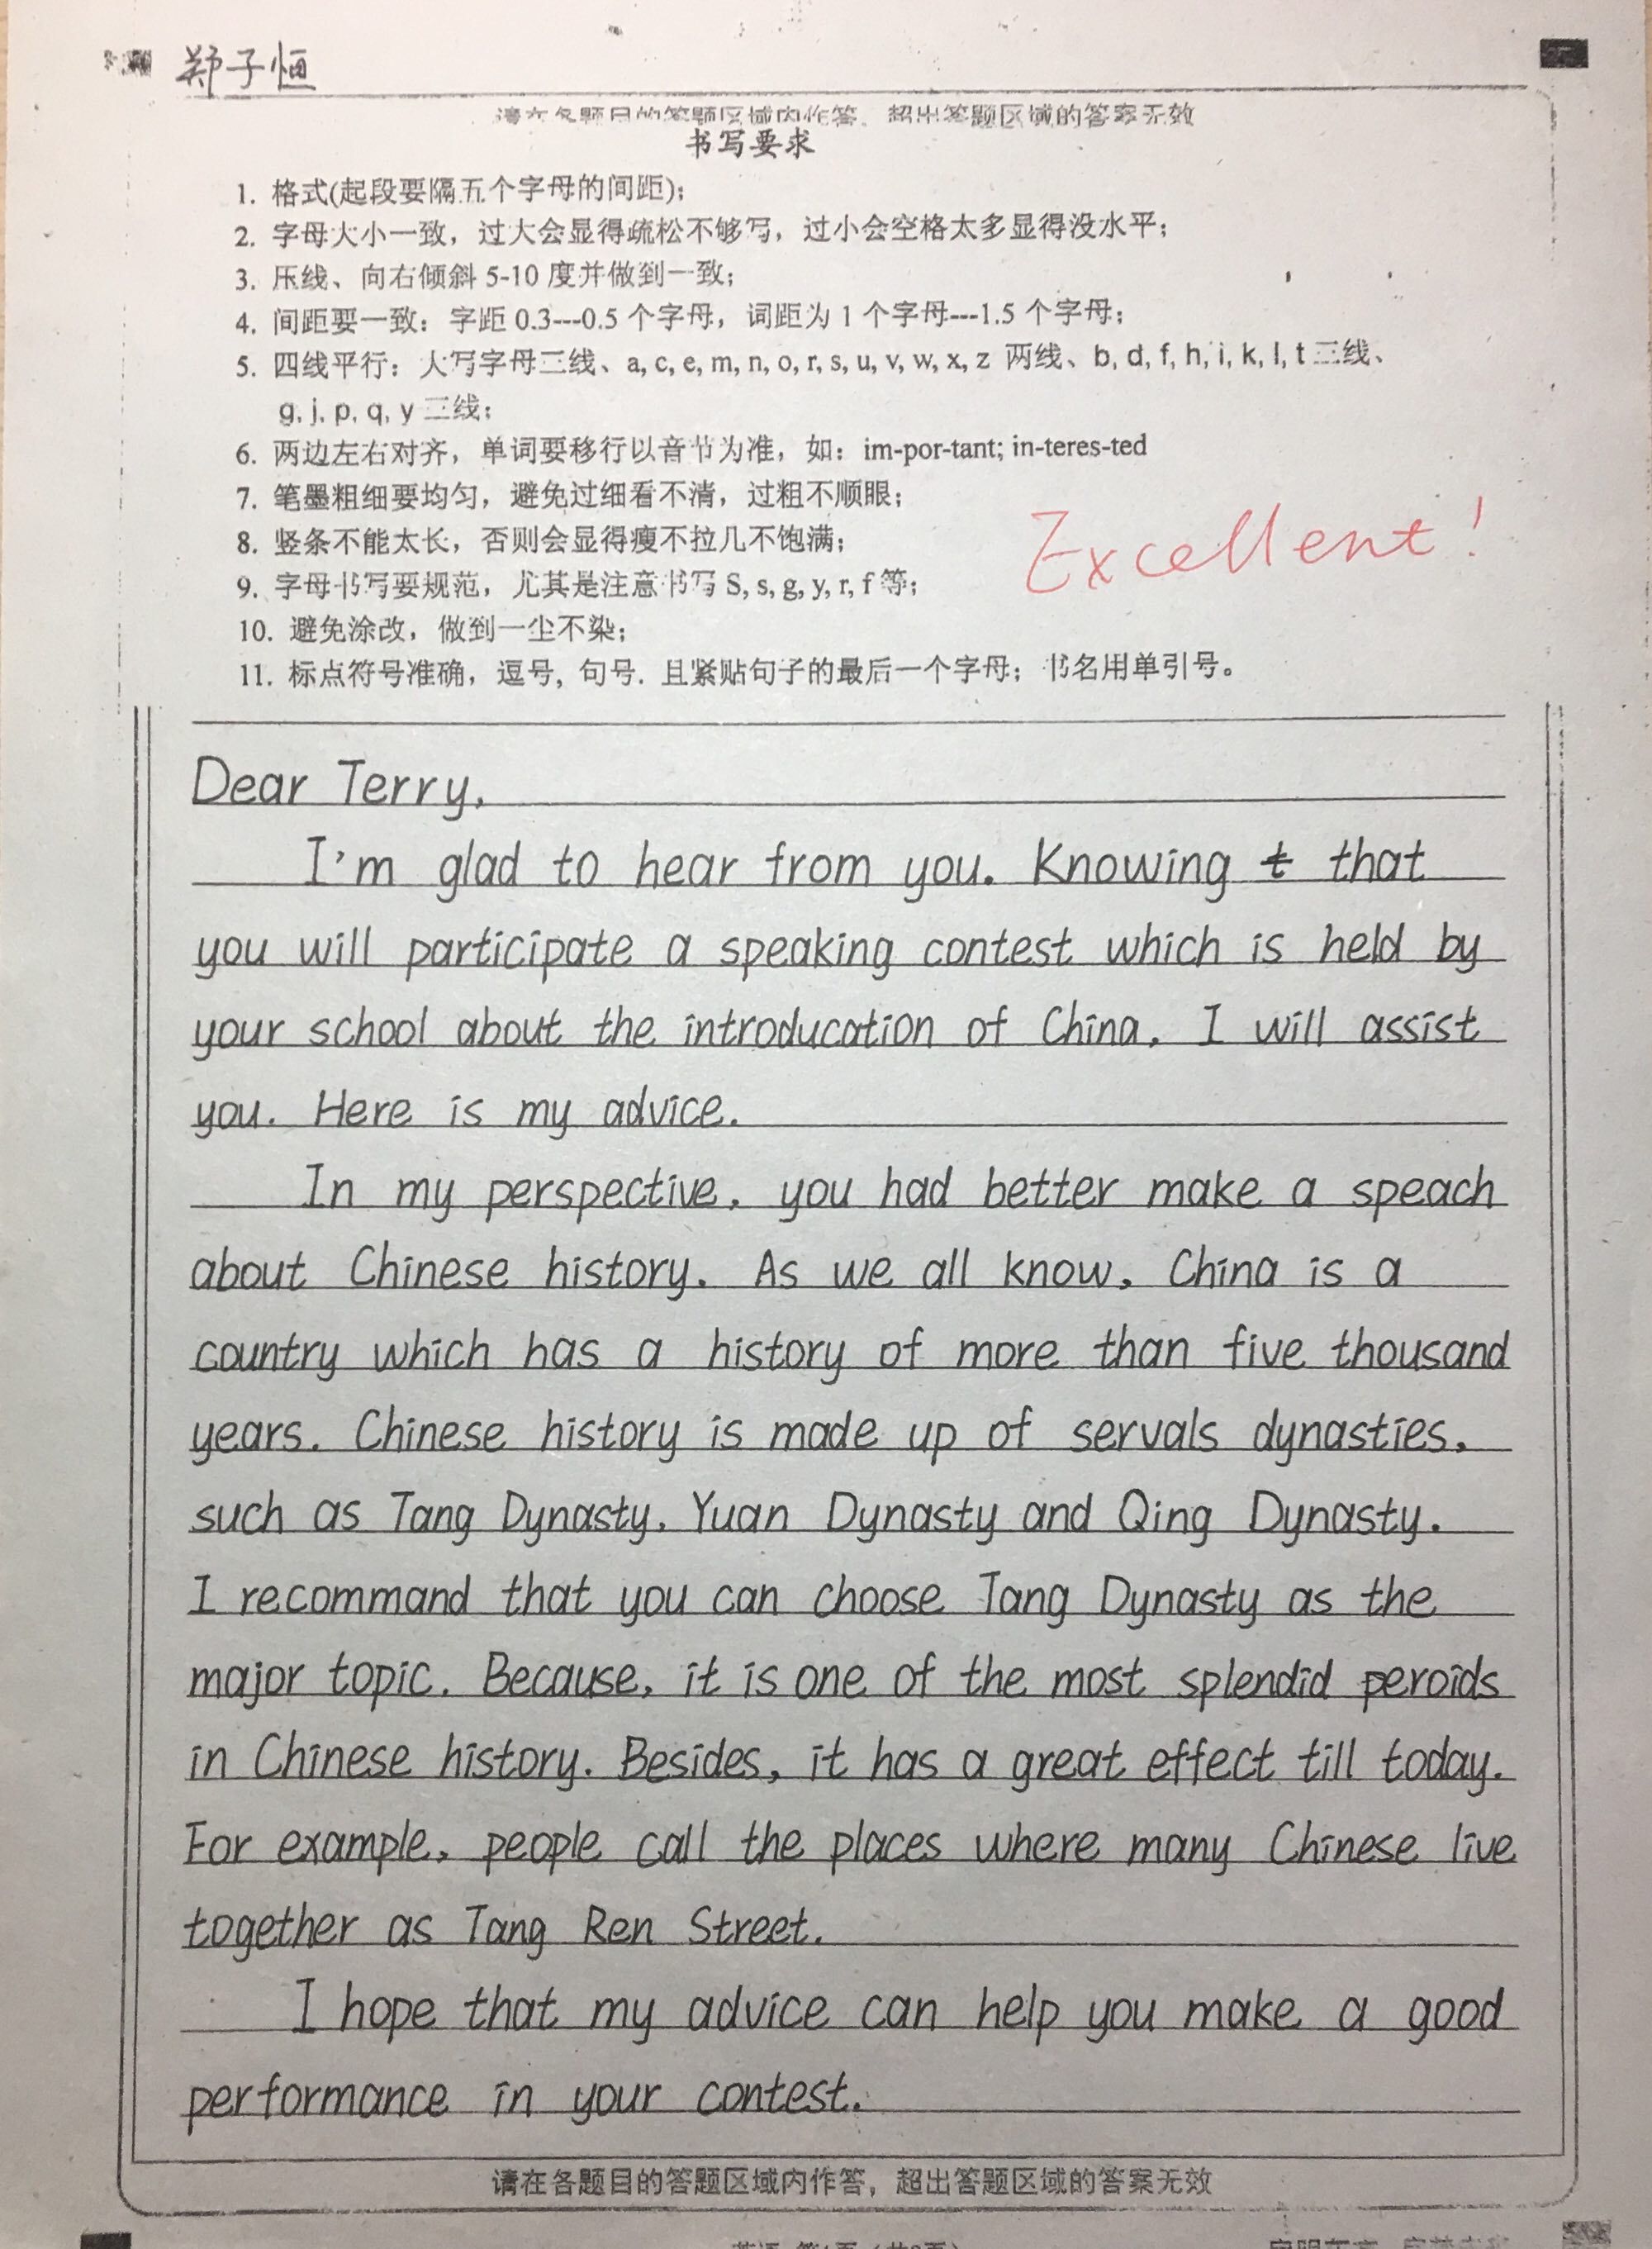 郑子恒
请在各题目的答题区域内作答，超出答题区域的答案无效
书写要求
1. 格式(起段要隔五个字母的间距);
2. 字母大小一致，过大会显得疏松不够写，过小会空格太多显得没水平;
3. 压线、向右倾斜 5-10 度并做到一致;
4. 间距要一致：字距 0.3---0.5 个字母，词距为 1 个字母---1.5 个字母;
5. 四线平行：大写字母三线、a, c, e, m, n, o, r, s, u, v, w, x, z 两线、b, d, f, h, i, k, l, t 三线、
g, j, p, q, y 三线;
6. 两边左右对齐，单词要移行以音节为准，如：im-por-tant; in-teres-ted
7. 笔墨粗细要均匀，避免过细看不清，过粗不顺眼;
8. 竖条不能太长，否则会显得瘦不拉几不饱满;
9. 字母书写要规范，尤其是注意书写 S, s, g, y, r, f 等;
Excellent!
10. 避免涂改，做到一尘不染;
11. 标点符号准确，逗号, 句号. 且紧贴句子的最后一个字母；书名用单引号。
Dear Terry,
I'm glad to hear from you. Knowing t that
you will participate a speaking contest which is held by
your school about the introducation of China, I will assist
you. Here is my advice.
In my perspective, you had better make a speach
about Chinese history. As we all know, China is a
country which has a history of more than five thousand
years. Chinese history is made up of servals dynasties,
such as Tang Dynasty, Yuan Dynasty and Qing Dynasty.
I recommand that you can choose Tang Dynasty as the
major topic. Because, it is one of the most splendid peroids
in Chinese history. Besides, it has a great effect till today.
For example, people call the places where many Chinese live
together as Tang Ren Street.
I hope that my advice can help you make a good
performance in your contest.
请在各题目的答题区域内作答，超出答题区域的答案无效